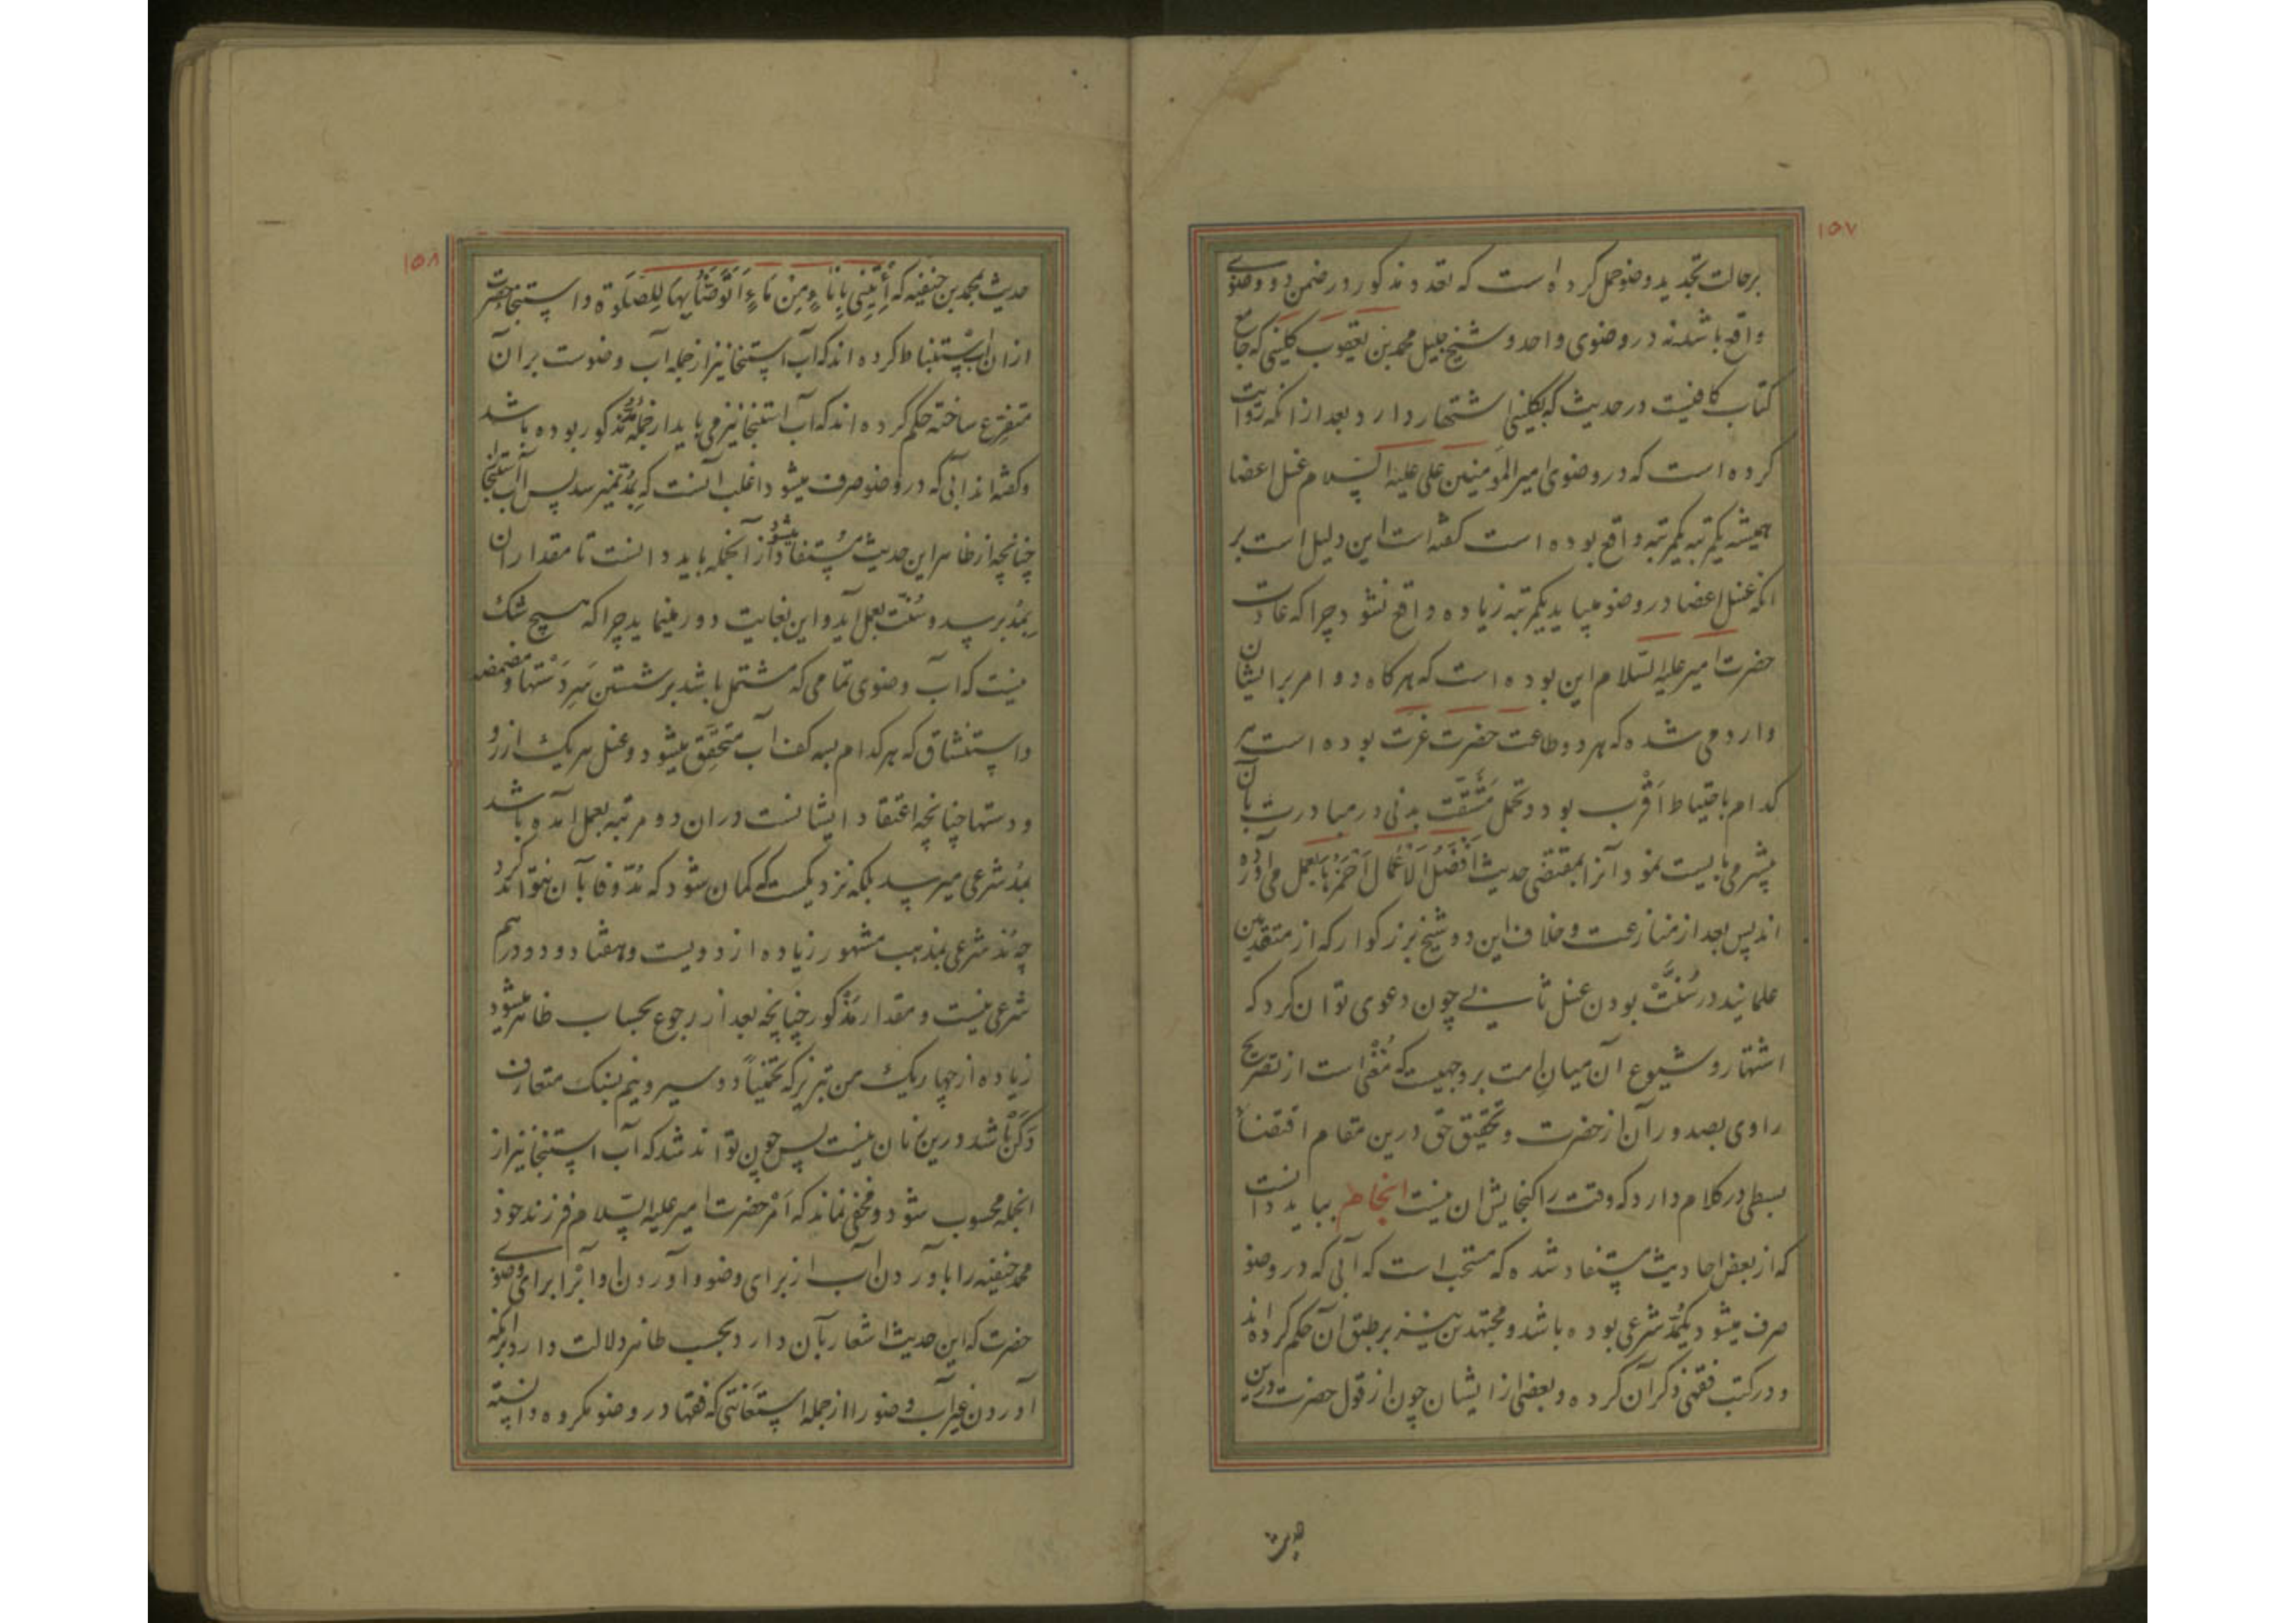 ۱۵۷
برحالت تجدید وضو حمل کرده است که تعدد مذکور در ضمن دو وضوی
واقع باشد نه در وضوی واحد و شیخ جلیل محمد بن یعقوب کلینی که جامع
کتاب کافیست در حدیث که بکلینی اشتهار دارد بعد از انکه روایت
کرده است که در وضوی امیر المومنین علی علیه السلام غسل اعضا
همیشه یکمرتبه یکمرتبه واقع بوده است گفته است این دلیل است بر
انکه غسل اعضا در وضو میباید یکمرتبه زیاده واقع نشود چرا که عادت
حضرت امیر علیه السلام این بوده است که هر کاه دو امر برایشان
وارد می شده که هر دو طاعت حضرت عزت بوده است هر
کدام باحتیاط اَقْرب بود و تحمل مَشَقَّت بدنی در مبادرت بآن
بیشتر می بایست نمود آنرا بمقتضی حدیث اَفْضَلُ الْاَعْمَال اَحْمَزُهَا بعمل می آورده
اند پس بعد از منازعت و خلاف این دو شیخ بزرکوار که از متقدمین
علمایند در سُنَّتْ بودن غسل ثانی چون دعوی توان کرد که
اشتهار و شیوع آن میان امت بر وجهیست که مُغْنی است از تصریح
راوی بصدور آن از حضرت و تحقیق حق درین مقام اقتضاء
بسطی در کلام دارد که وقت را کنجایش ان نیست انجاح بباید دانست
که از بعض احادیث مستفاد شده که مستحب است که آبی که در وضو
صرف میشود یکمُد شرعی بوده باشد و مجتهدین نیز بر طبق آن حکم کرده اند
و در کتب فقهی ذکر آن کرده و بعضی از ایشان چون از قول حضرت درین
حدیث
۱۵۸
حدیث بمحمد بن حنفیه که أَئْتِنِی بِإِنَاءٍ مِنْ مَاءٍ اَتَوَضَّأُ بِهَا لِلصَّلَوة و استنجا حضرت
از ان آب استنباط کرده اند که آب استنجا نیز از جمله آب وضوست بر آن
متفرع ساخته حکم کرده اند که آب استنجا نیز می باید از جمله مُدّ مذکور بوده باشد
و گفته اند آبی که در وضو صرف میشود اغلب آنست که بمُدّ نمیرسد پس آب استنجا
چنانچه از ظاهر این حدیث مُستفاد میشود از آنجمله باید دانست تا مقدار ان
بمُد برسد و سُنّت بعمل آید و این بغایت دور مینماید چرا که هیچ شک
نیست که آب وضوی تمامی که مشتمل باشد بر شستن هر دستها و مضمضه
و استنشاق که هر کدام بسه کف آب متحقق میشود و غسل هر یک از رو
و دستها چنانچه اعتقاد ایشانست دران دو مرتبه بعمل آمده باشد
بمُد شرعی میرسد بلکه نزدیکست که کمان شود که مُدّ وفا بآن نتواند کرد
چه مُد شرعی بمذهب مشهور زیاده از دویست و هفتاد و دو درهم
شرعی نیست و مقدار مَذْکور چنانچه بعد از رجوع بحساب ظاهر میشود
زیاده از چهار یک من تبریز که تخمیناً دو سیر و نیم بسنک متعارف
دَکَنْ باشد درین زمان نیست پس چون تواند شد که آب استنجا نیز از
انجمله محسوب شود و مخفی نماند که اَمْر حضرت امیر علیه السلام فرزند خود
محمد حنفیه را باوردن آب از برای وضو و آوردن او آنرا برای وضوی
حضرت که این حدیث اشعار بآن دارد بحسب ظاهر دلالت دارد برانکه
آوردن غیر آب وضو را از جمله استعانتی که فقها در وضو مکروه دانسته